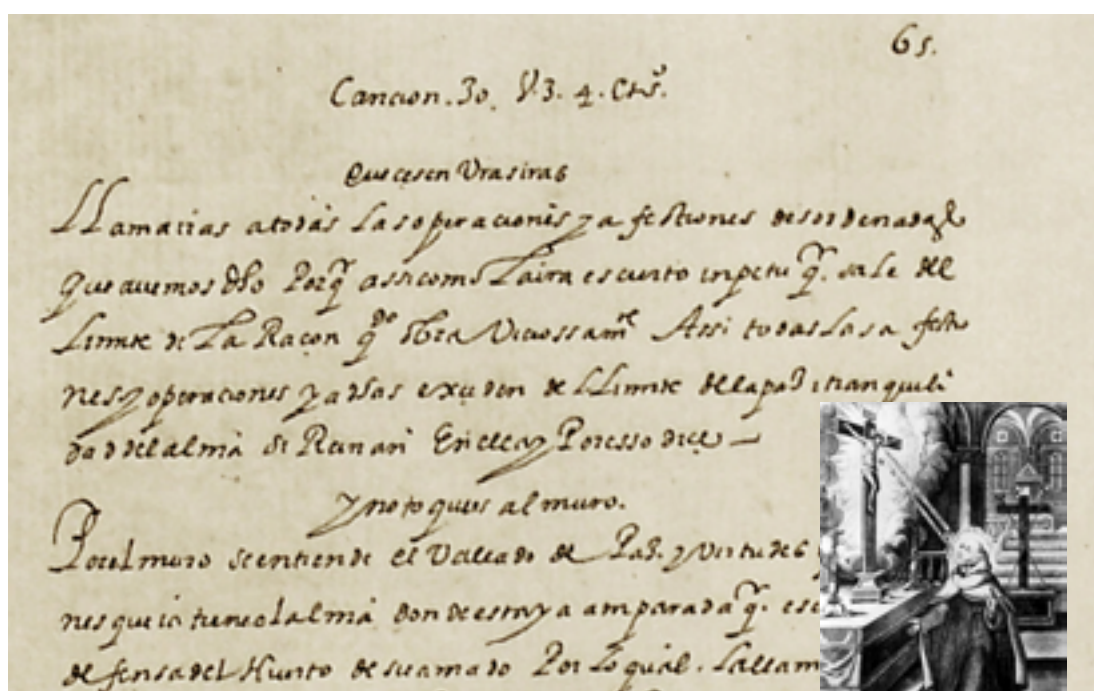 65.
Cancion. 30. V. 3. 4. Ctº.
Que cesen vras iras
LLama iras a todas las operaciones y afectiones desordenadas
que avemos dho Porq̃ assi como la ira es cierto inpetu q̃. sale del
Limite de La Raçon q̃do obra Viciossamte Assi todas las afectio
nes y operaciones ya dhas exceden del Limite de la paz i tranquili
dad del alma si Reinan En ella y Por esso dice
y no toqueis al muro.
Por el muro se entiende el Vallado de Paz. y Virtudes
nes que ia tiene el alma donde esta ya amparada q̃. es e
defensa del Huerto de su amado Por Lo qual. la llam